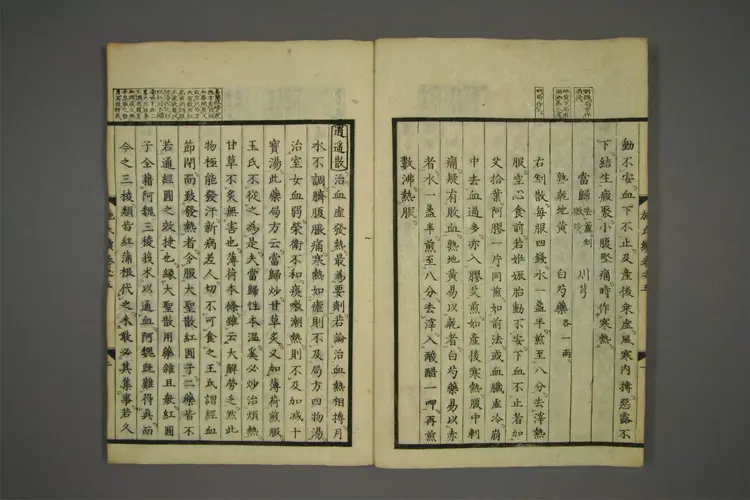 動不安血下不止及產後乘虛風寒內搏惡露不
下結生瘕聚小腹堅痛時作寒熱
當歸 去蘆 川芎
熟乾地黃 白芍藥 各一兩
右剉散每服四錢水一盞半煎至八分去滓熱
服空心食前若姙娠胎動不安下血不止者加
艾拾葉阿膠一片同煎如前法或血臟虛冷崩
中去血過多亦入膠艾煎如產後寒熱腹中刺
痛疑有敗血熟地黃易以乾者白芍藥易以赤
者水一盞半煎至八分去滓入酸醋一呷再煎
數沸熱服
施氏續卷之五
逍遙散治血虛發熱最為要劑若論治血熱相搏月
水不調臍腹脹痛寒熱如瘧則不及局方四物湯
治室女血弱榮衛不和痰嗽潮熱則不及加減十
寶湯此藥局方云當歸炒甘草炙又加薄荷煎服
王氏不從之為是夫當歸性本溫奚必炒治煩熱
甘草不炙無害也薄荷本條雖云大解勞乏然此
物極能發汗新病差人切不可食之王氏謂經血
節閉而致發熱者令服大聖散紅圓子二藥皆不
若通經圓之敏捷也緣大聖散用藥雜且敷紅圓
子全藉阿魏三稜莪朮以通血阿魏既難得真而
今之三稜類皆紅蒲根代之未敢必其集事若久
施氏續卷之五